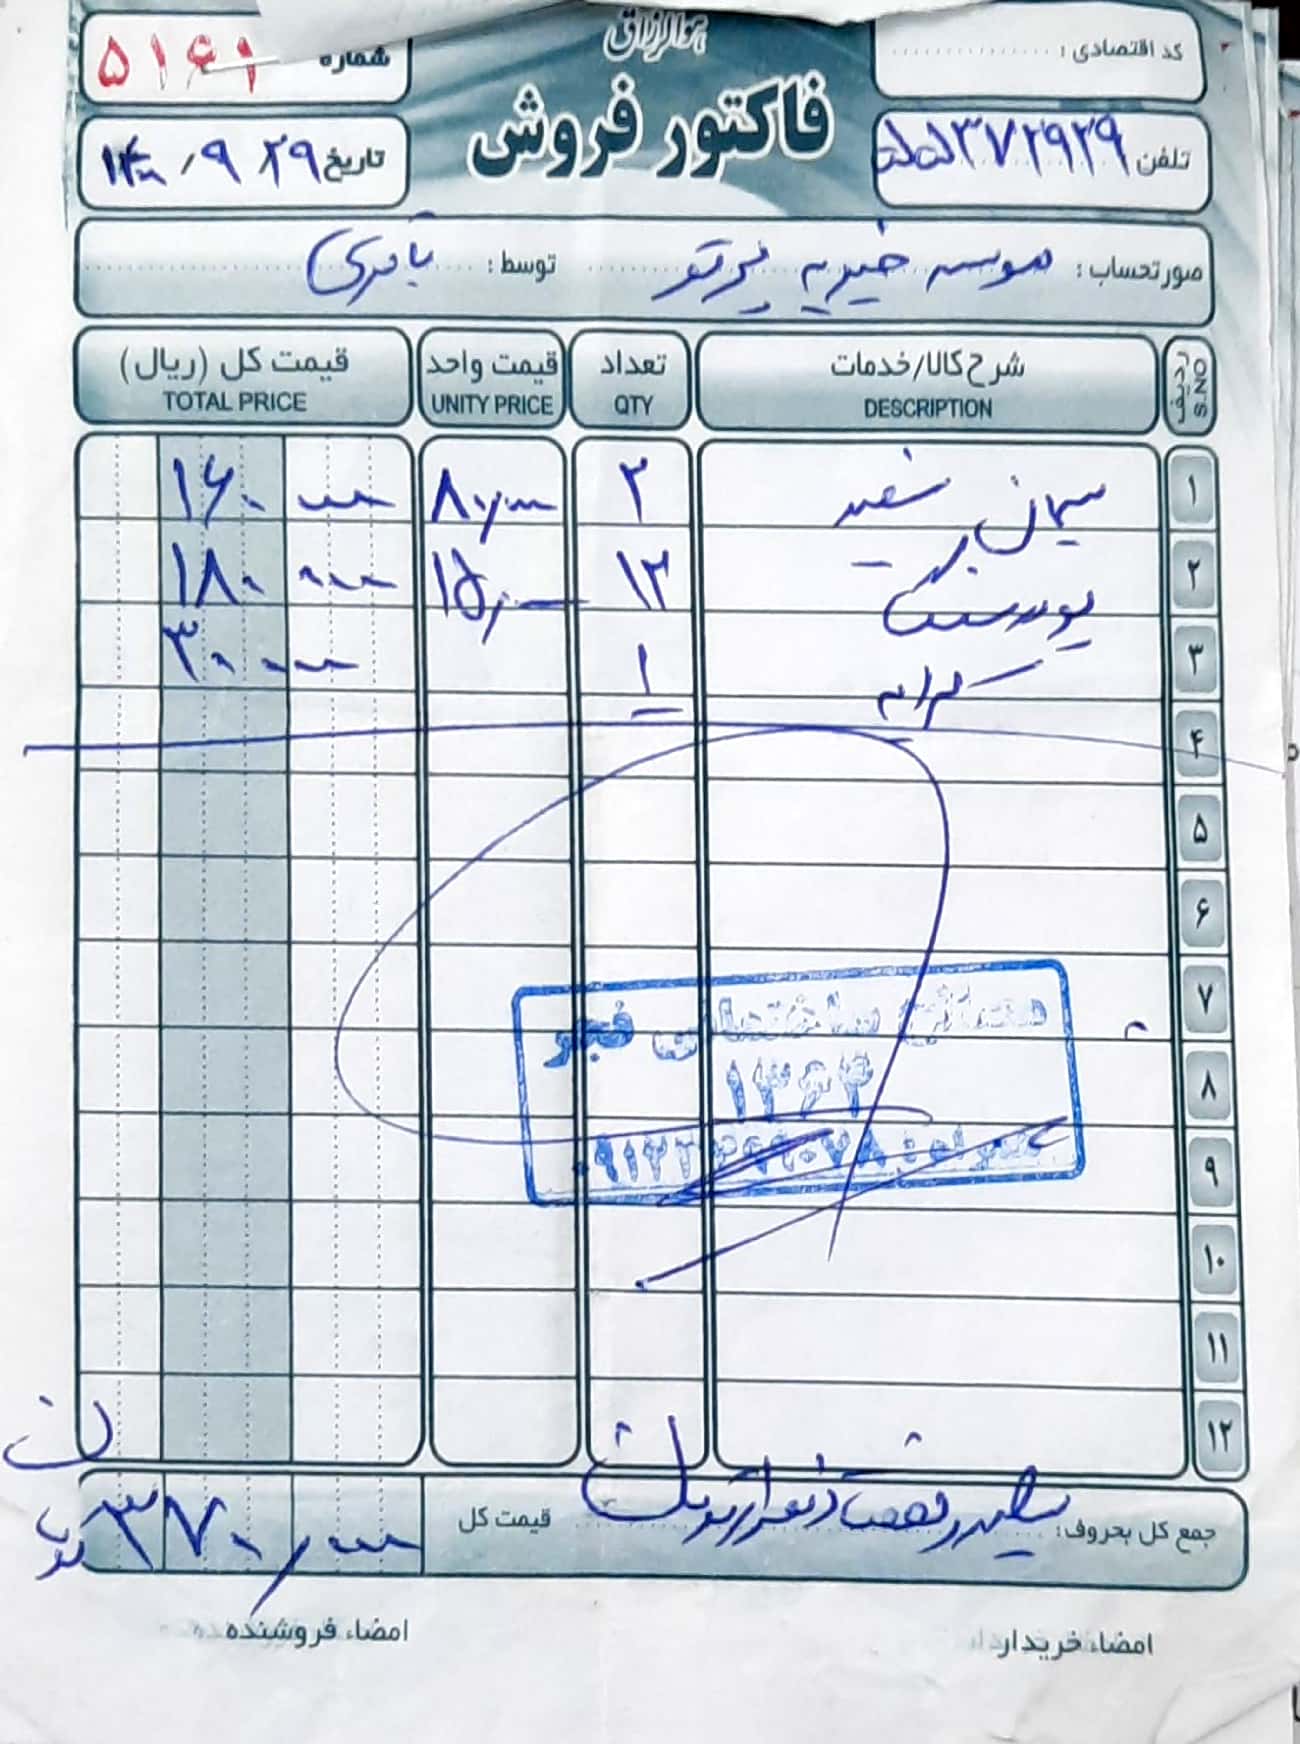 هوالرزاق
فاکتور فروش
کد اقتصادی :
تلفن ۵۵۳۷۲۹۲۹
شماره ۵۱۶۱
تاریخ ۱۴۰۰/۹/۲۹
صورتحساب : موسسه خیریه پرتو توسط : باقری
ردیف S.NO شرح کالا/خدمات DESCRIPTION تعداد QTY قیمت واحد UNITY PRICE قیمت کل (ریال) TOTAL PRICE
۱ سیمان سفید ۲ ۸۰/۰۰۰ ۱۶۰ ۰۰۰
۲ پودر سنگ ۱۲ ۱۵/۰۰۰ ۱۸۰ ۰۰۰
۳ کرایه ۱ ۳۰ ۰۰۰
۴
۵
۶
۷
۸
۹
۱۰
۱۱
۱۲
مصالح ساختمانی فجر
۱۳۶۳
جمع کل بحروف: سیصد و هفتاد هزار تومان قیمت کل ۳۷۰/۰۰۰
امضاء خریدار امضاء فروشنده